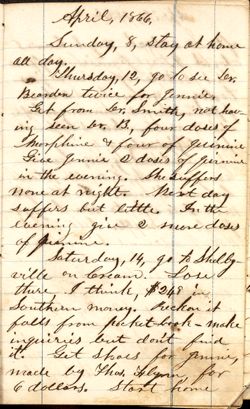 April, 1866.
Sunday, 8, stay at home
all day.
Thursday, 12, go to see Dr.
Bearden twice for Jennie.
Get from Dr. Smith, not hav-
ing seen Dr. B, four doses of
Morphine & four of quinine
Give Jennie 2 doses of quinine
in the evening. She suffers
none at night. Next day
suffers but little. In the
evening give 2 more doses
of quinine.
Saturday, 14, go to Shelby-
ville on Cream. Lose
there I think, $248 in
Southern money. Reckon it
falls from pocket book - make
inquiries but don't find
it. Get shoes for Jennie,
made by Thos. Flynn, for
6 dollars. Start home